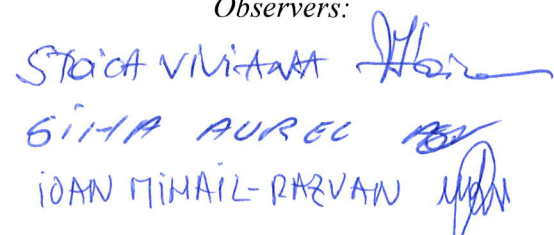 Observers:
STOICA VIVIANA
GIHA AUREL
IOAN MIHAIL-RAZVAN